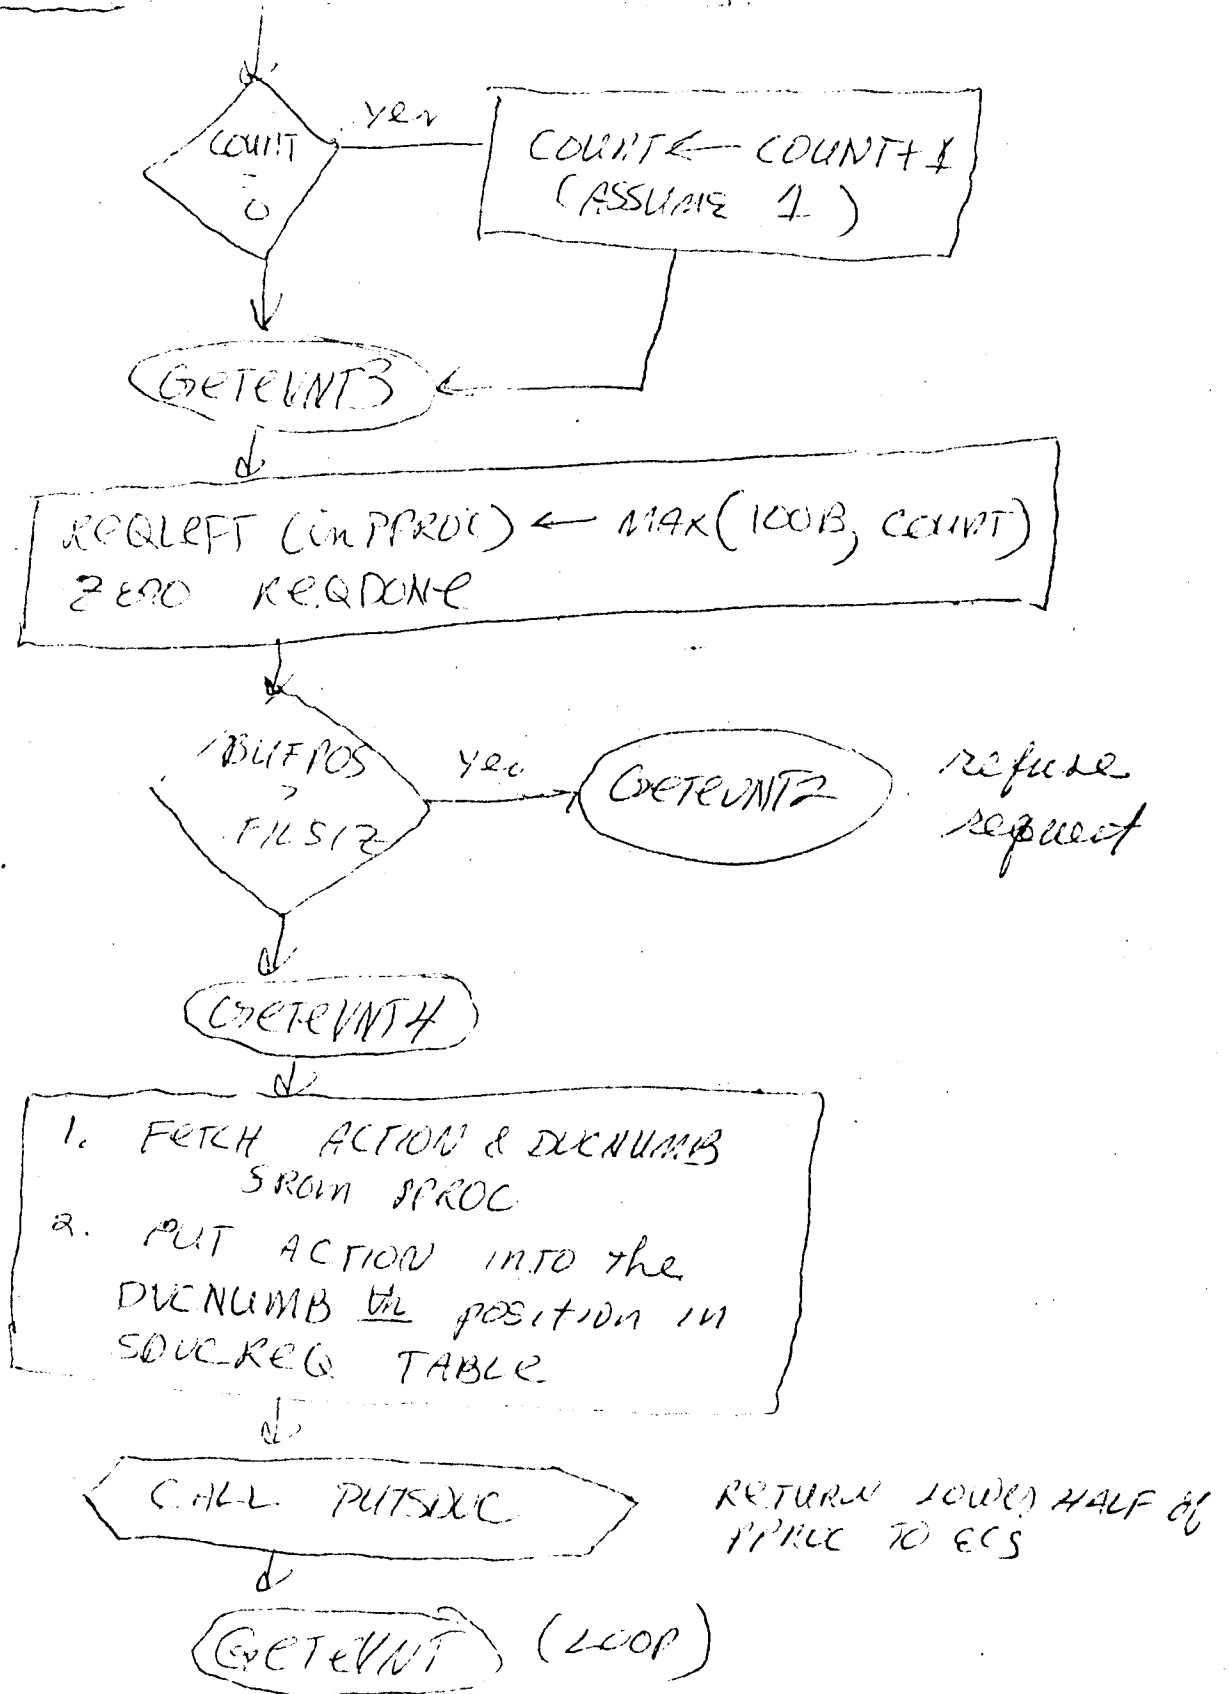 COUNT
=
0
yes
COUNT ← COUNT + 1
(ASSUME 1)
GETEVNT3
REQLEFT (in PPROC) ← MAX(100B, COUNT)
ZERO REQDONE
BUFPOS
>
FILSIZ
yes
GETEVNT2
refuse
request
GETEVNT4
1. FETCH ACTION & DVCNUMB
FROM PPROC
2. PUT ACTION INTO the
DVCNUMB th position in
SDVCREQ TABLE
CALL PUTSDVC
RETURN LOWER HALF of
PPROC TO ECS
GETEVNT (LOOP)